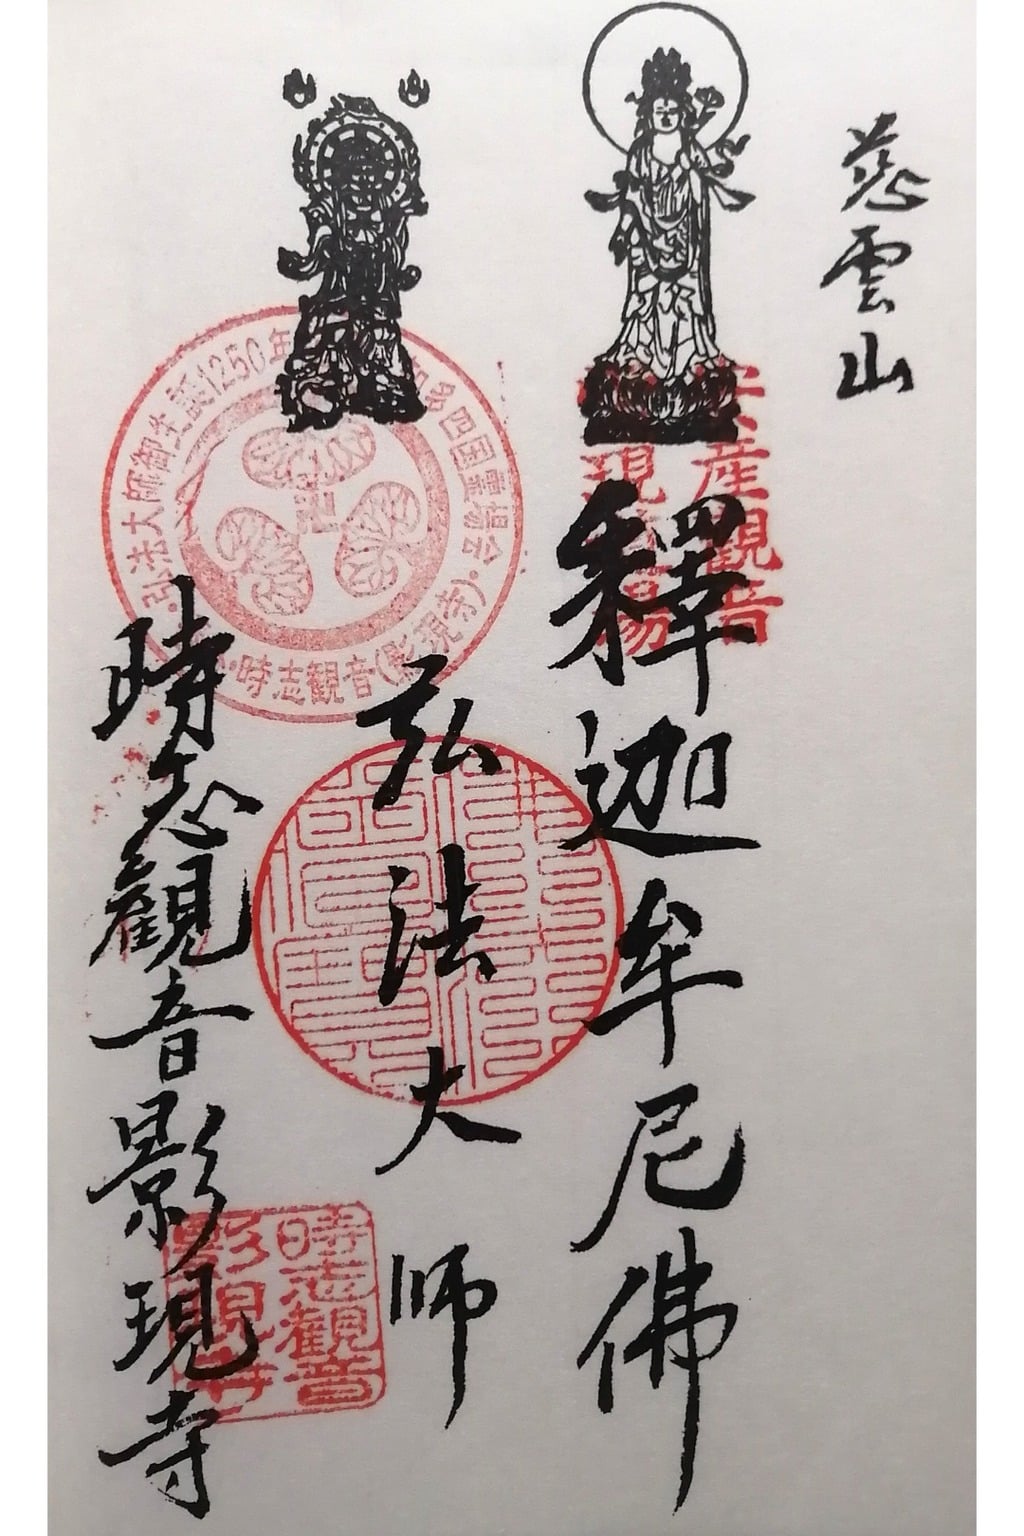 慈雲山
安産観音
現
場
釋迦牟尼佛
弘法大師
時志觀音影現寺
弘法大師御生誕1250年
知多四国霊場会
時志観音(影現寺)
時志観音
影現寺